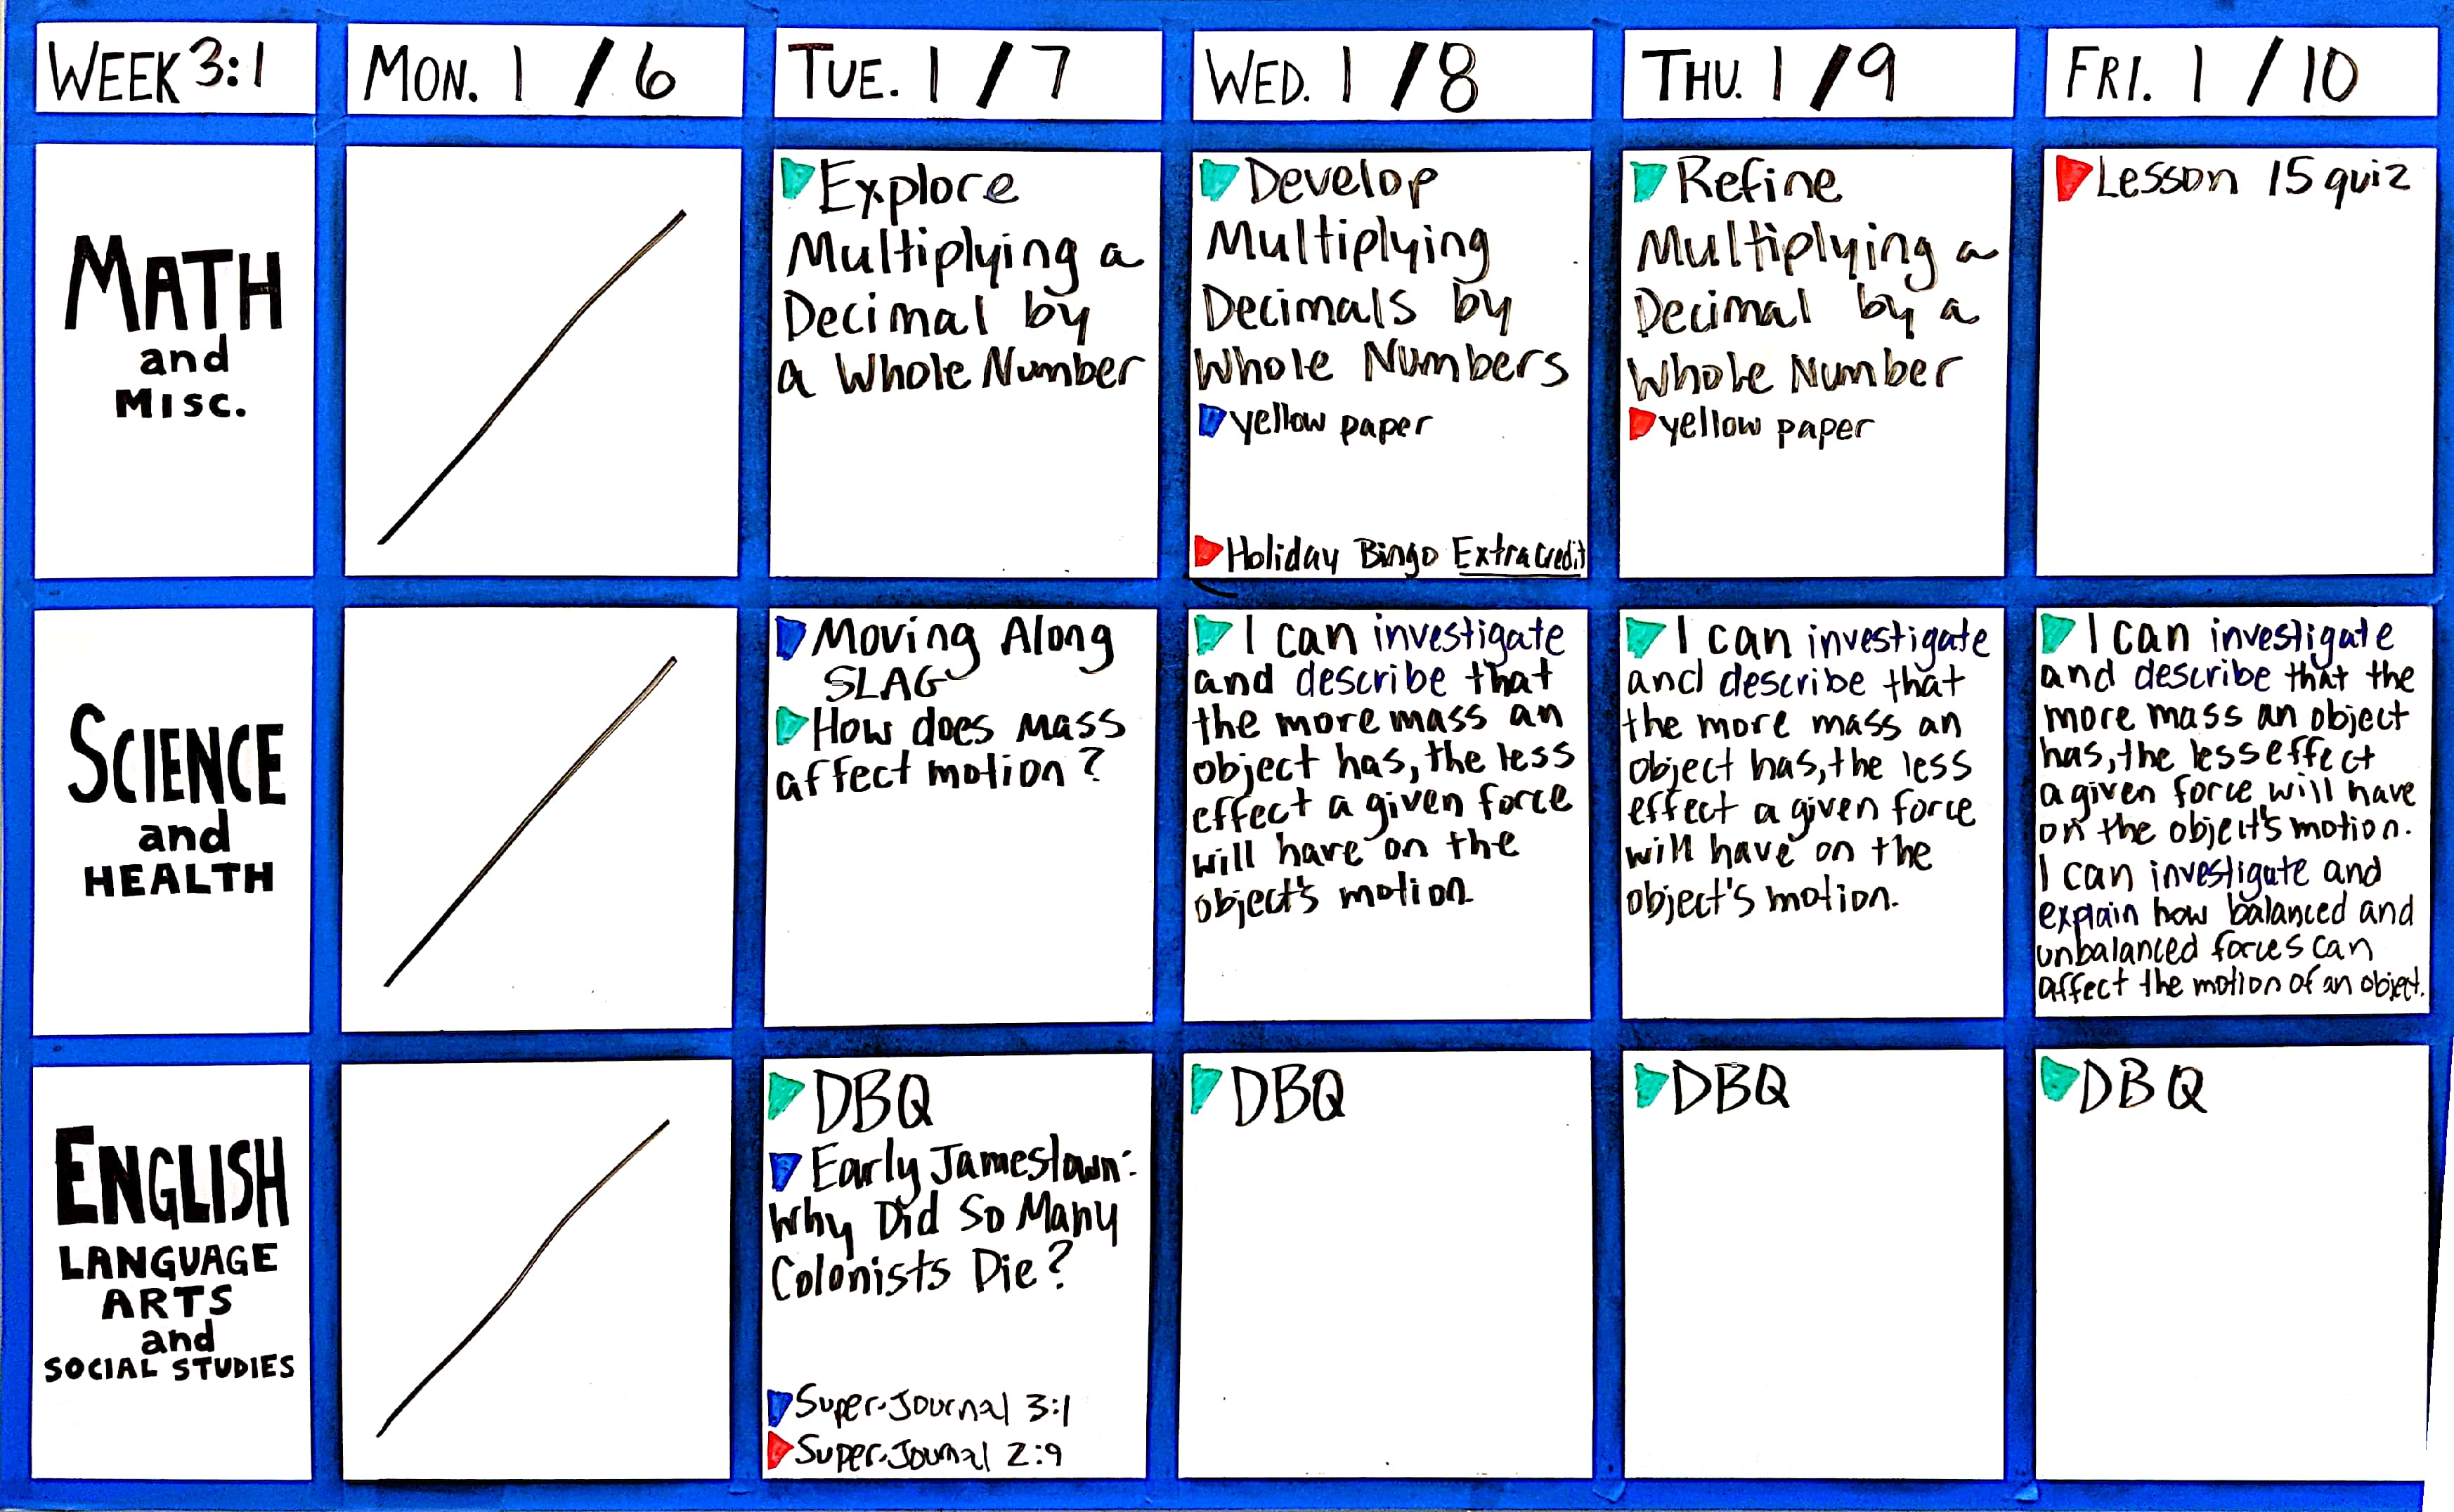 WEEK 3:1
MON. 1 / 6
TUE. 1 / 7
WED. 1 / 8
THU. 1 / 9
FRI. 1 / 10
MATH
and
MISC.
Explore
Multiplying a
Decimal by
a Whole Number
Develop
Multiplying
Decimals by
Whole Numbers
yellow paper
Holiday Bingo Extra Credit
Refine
Multiplying a
Decimal by a
Whole Number
yellow paper
Lesson 15 quiz
SCIENCE
and
HEALTH
Moving Along
SLAG
How does mass
affect motion?
I can investigate
and describe that
the more mass an
object has, the less
effect a given force
will have on the
object's motion.
I can investigate
and describe that
the more mass an
object has, the less
effect a given force
will have on the
object's motion.
I can investigate
and describe that the
more mass an object
has, the less effect
a given force will have
on the object's motion.
I can investigate and
explain how balanced and
unbalanced forces can
affect the motion of an object.
ENGLISH
LANGUAGE
ARTS
and
SOCIAL STUDIES
DBQ
Early Jamestown:
Why Did So Many
Colonists Die?
Super-Journal 3:1
Super-Journal 2:9
DBQ
DBQ
DBQ